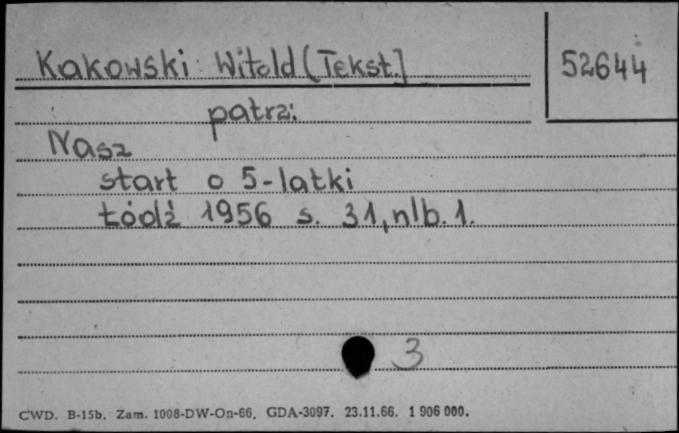 Kakowski Witold (Tekst.]
52644
patrz:
Nasz
start o 5-latki
Łódź 1956 s. 31, nlb. 1.
3
CWD. B-15b. Zam. 1008-DW-On-66. GDA-3097. 23.11.66. 1 906 000.